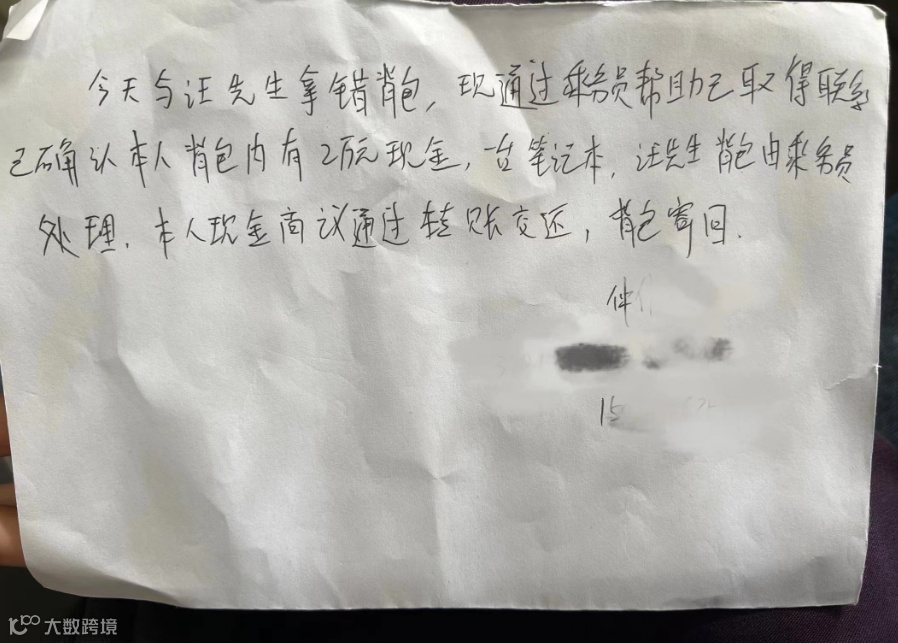 今天与汪先生拿错背包,现通过乘务员帮助已取得联系
已确认本人背包内有2万元现金,一台笔记本,汪先生背包由乘务员
处理.本人现金商议通过转账交还,背包寄回.
仲
15
大数跨境